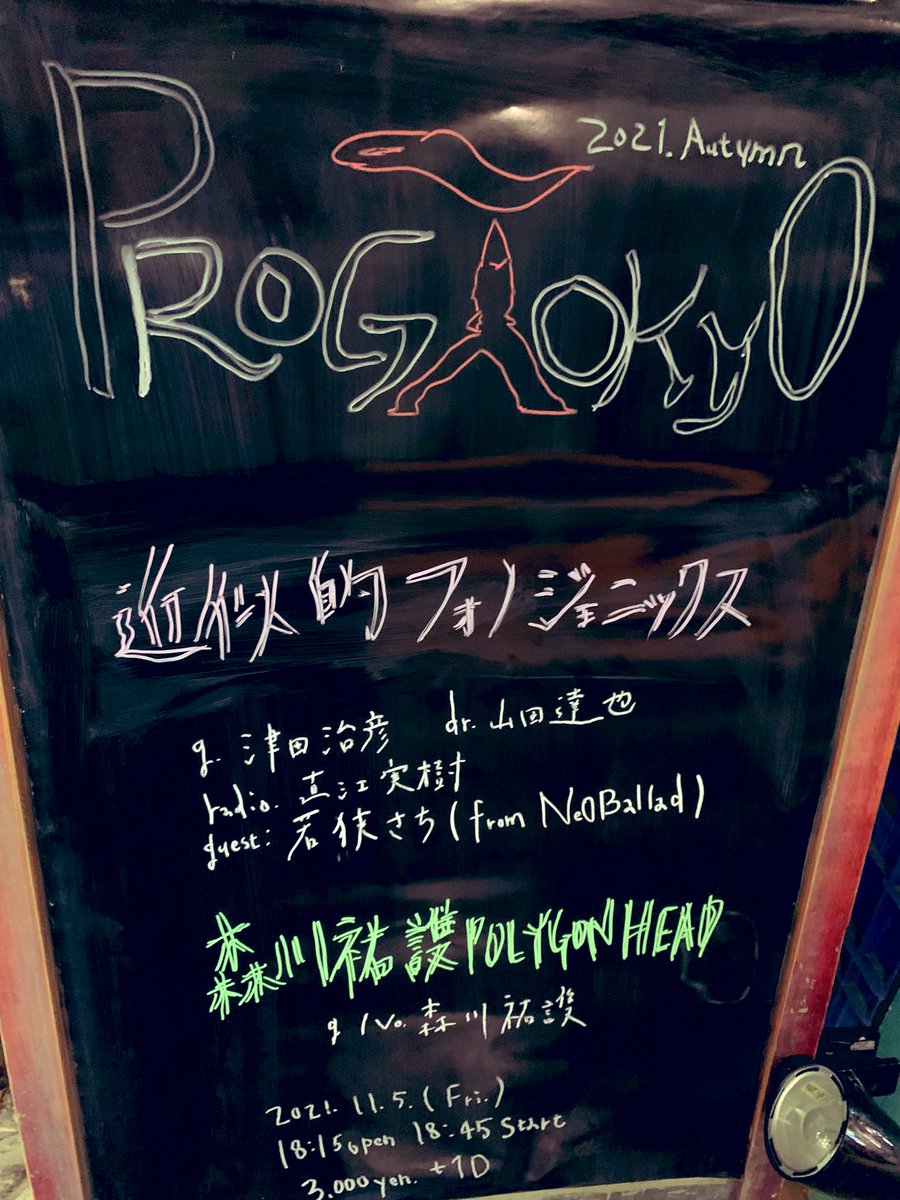 2021. Autumn
PROG TOKyO
近似的フォノジェニックス
g. 津田治彦 dr. 山田達也
radio. 直江実樹
guest: 若狭さち (from NeOBallad)
森川祐護 POLYGON HEAD
g / Vo. 森川祐護
2021. 11. 5. (Fri.)
18:15 open 18:45 Start
3.000 yen. +1D